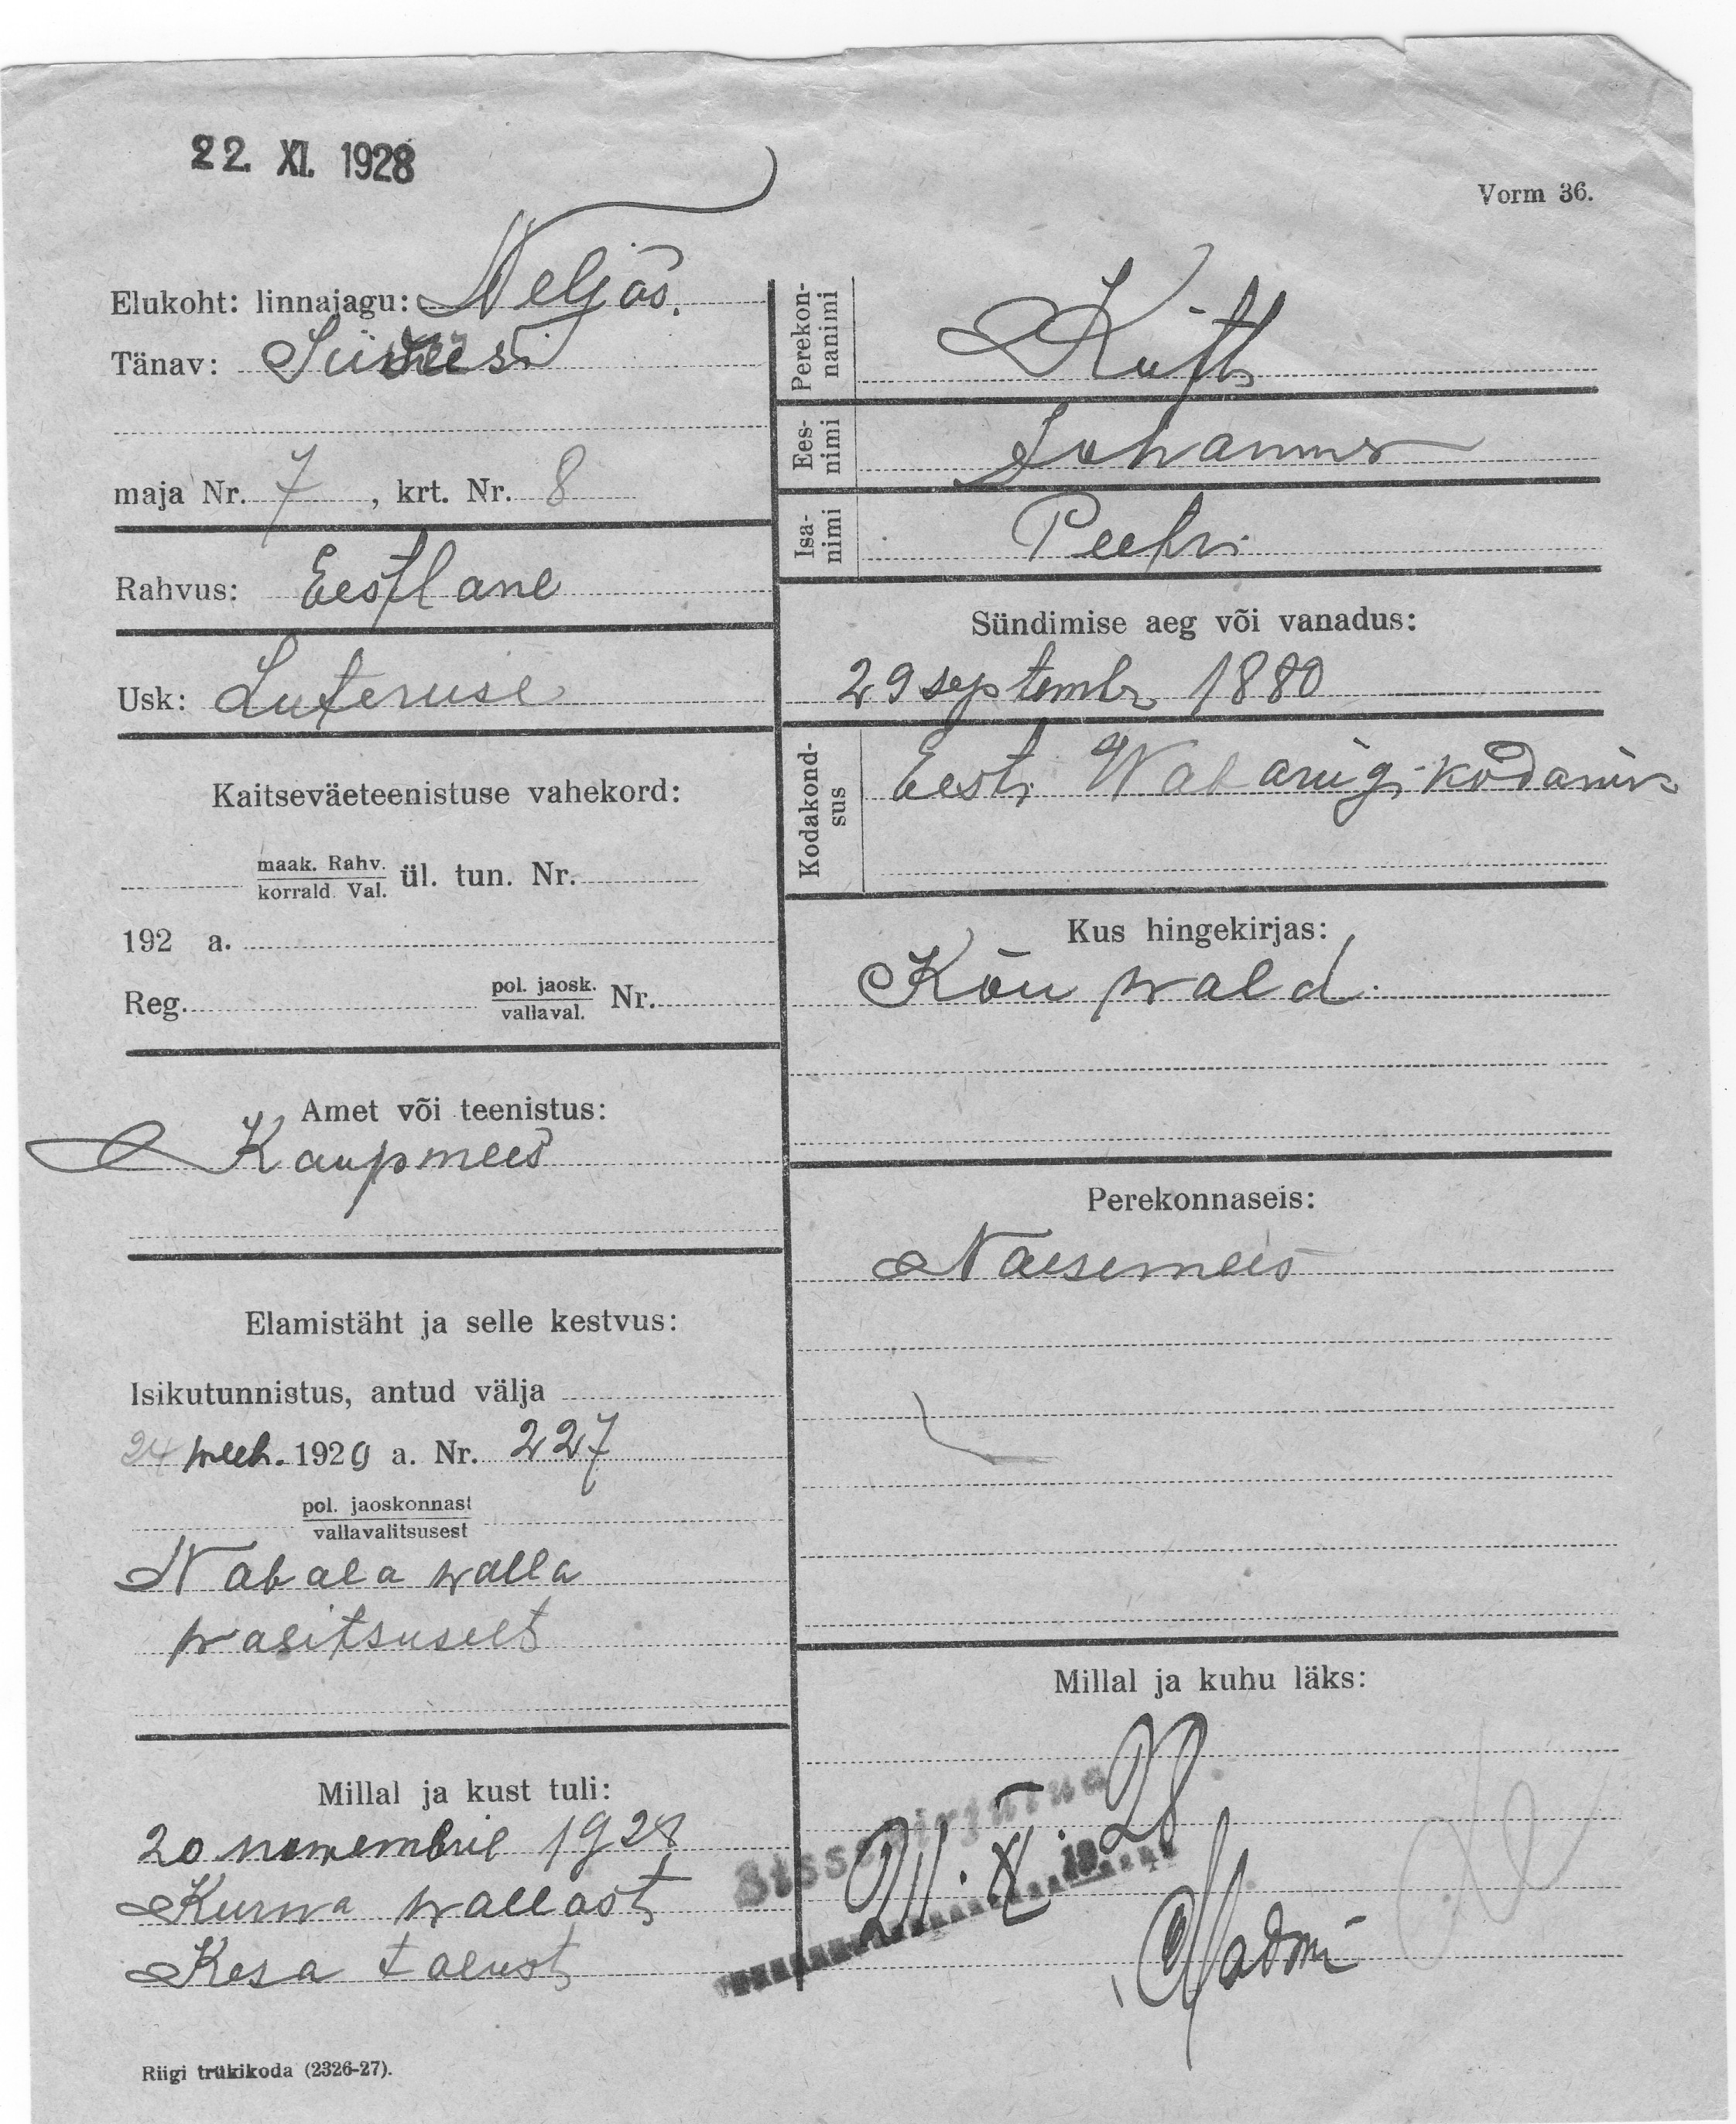 22. XI. 1928
Vorm 36.
Elukoht: linnajagu: Neljas.
Tänav:
maja Nr. 7, krt. Nr. 8
Rahvus: Eestlane
Usk: Luteruse
Kaitseväeteenistuse vahekord:
maak. Rahv.
korrald. Val. ül. tun. Nr.
192 a.
Reg. pol. jaosk.
vallaval. Nr.
Amet või teenistus:
Kaupmees
Elamistäht ja selle kestvus:
Isikutunnistus, antud välja
24 weeb. 1920 a. Nr. 227
pol. jaoskonnast
vallavalitsusest
Nabala walla
walitsusest
Millal ja kust tuli:
20 nowembril 1928
Kurna wallast
Kesa talust
Riigi trükikoda (2326-27).
Perekon-
nanimi
Kütt
Ees-
nimi
Johannes
Isa-
nimi
Peetri
Sündimise aeg või vanadus:
29 septembr 1880
Kodakond-
sus
Eesti Wabariigi kodanik
Kus hingekirjas:
Kõu wald.
Perekonnaseis:
Naesemees
Millal ja kuhu läks:
Sissekirjutud
21. XI 1928